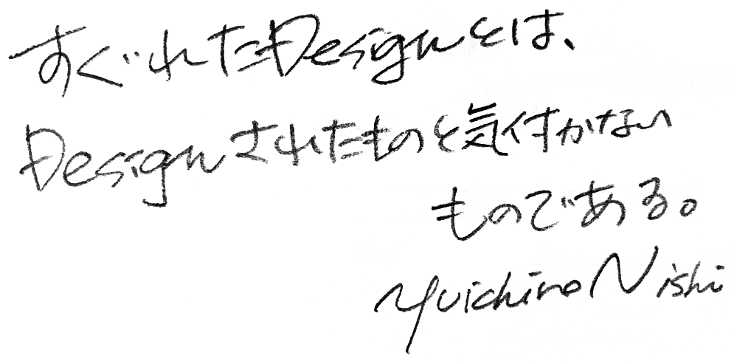 すぐれたDesignとは、
Designされたものと気付かない
ものである。
Yuichiro Nishi